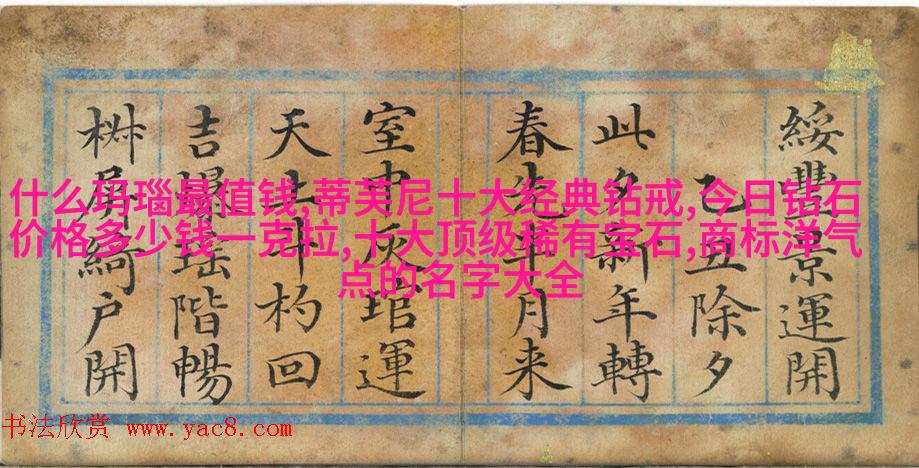 綏豐景運開
乙丑除夕
此夕新年轉
春先半月来
室中灰琯運
天上斗杓回
吉瑶階暢
屏綺戶開
什么玛瑙最值钱,蒂芙尼十大经典钻戒,今日钻石
价格多少钱一克拉,十大顶级稀有宝石,商标洋气
点的名字大全
书法欣赏 www.yac8.com